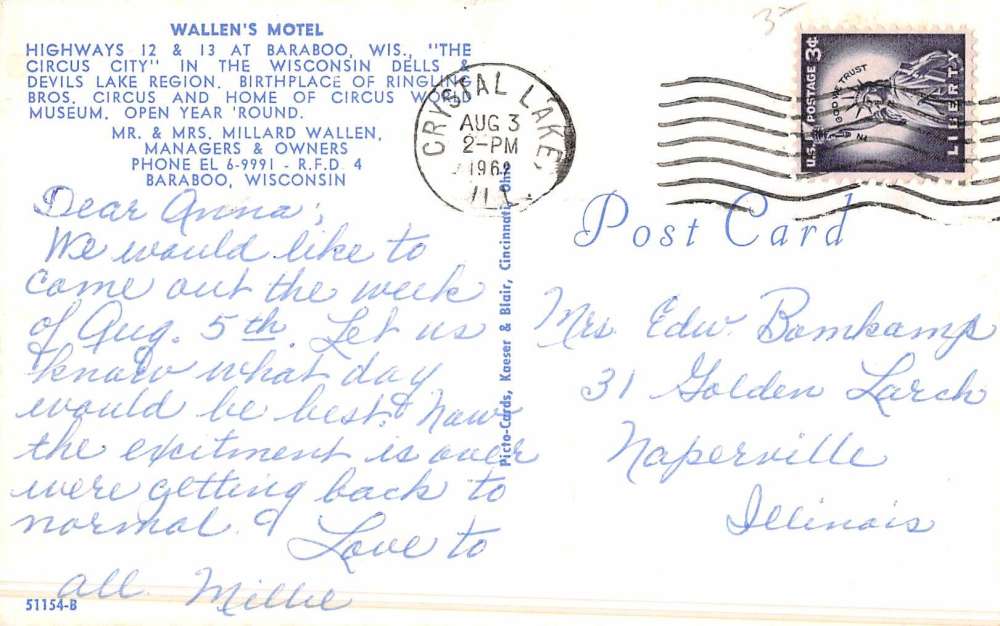 WALLEN'S MOTEL
HIGHWAYS 12 & 13 AT BARABOO, WIS., "THE
CIRCUS CITY" IN THE WISCONSIN DELLS &
DEVILS LAKE REGION. BIRTHPLACE OF RINGLING
BROS. CIRCUS AND HOME OF CIRCUS WORLD
MUSEUM. OPEN YEAR 'ROUND.
MR. & MRS. MILLARD WALLEN,
MANAGERS & OWNERS
PHONE EL 6-9991 - R.F.D 4
BARABOO, WISCONSIN
Dear Anna;
We would like to
come out the week
of Aug. 5th. Let us
know what day
would be best. Now
the excitment is over
were getting back to
normal.
Love to
all. Millie
51154-B
Picto-Cards, Kaeser & Blair, Cincinnati, Ohio
CRYSTAL LAKE,
AUG 3
2-PM
1962
ILL.
3-
U.S. POSTAGE 3¢
IN GOD WE TRUST
LIBERTY
Post Card
Mrs. Edw. Bomkamp
31 Golden Larch
Naperville
Illinois